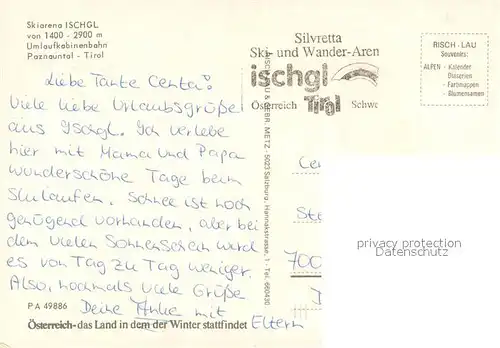 Skiarena ISCHGL
von 1400 - 2900 m
Umlaufkabinenbahn
Paznauntal - Tirol
Liebe Tante Centa!
Viele liebe Urlaubsgrüße
aus Ischgl. Ich verlebe
hier mit Mama und Papa
wunderschöne Tage beim
Skilaufen. Schnee ist noch
genügend vorhanden, aber bei
dem vielen Sonnenschein wird
es von Tag zu Tag weniger.
Also, nochmals viele Grüße
Deine Anke mit
Eltern
PA 49886
Österreich - das Land in dem der Winter stattfindet
METZ - 5023 Salzburg, - Tel. 660430
Silvretta
Ski- und Wander-Aren
ischgl
Tirol
Österreich Schwe
RISCH-LAU
Souvenirs:
ALPEN - Kalender
- Diaserien
- Farbmappen
- Blumensamen
Cen
Ste
700
privacy protection
ansichtskarten-lexikon.de